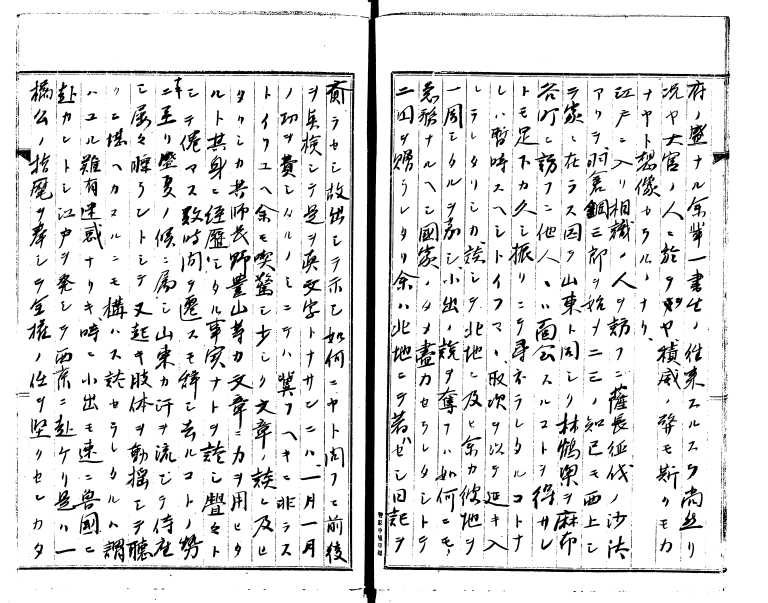 府ノ盛ナル余輩一書生ノ往来スルスラ尚此ノ
況ヤ大官ノ人ニ於テヲヤ積威ノ弊モ斯クモカ
ナヤト想像セラルヽナリ
江戸ニ入リ相識ノ人ヲ訪フニ薩長征伐ノ沙汰
アリテ羽倉鋼三郎ヲ始メ二三ノ知己モ西上シ
テ家ニ在ラス因テ山東ト同シク林鶴梁ヲ麻布
谷町ニ訪フニ他人ニハ面会スルコトヲ得サレ
トモ足下カ久シ振リニテ尋ネラレタルコトナ
レハ暫時スヘシトイフマヽ取次ヲ以テ延キ入
レラレタリシカ談シテ北地ニ及ヒ余カ彼地ヲ
一周シタルヲ称シ小出ノ説ヲ奪フハ如何ニモ
急務ナルヘシ国家ノタメ尽力セラレタシトテ
二回ヲ贈ラレタリ余ハ北地ニテ著ハセシ日記ヲ
齎ラセシ故出シテ示シ如何ニヤト問フニ前後
ヲ点検シテ是ヲ真文字トナサンニハ一月一月
ノ功ヲ費シ
トイフユヘ余モ喫驚シ少シク文章ノ談ニ及ヒ
タリシカ共師長野豊山等カ文章ニ力ヲ用ヒタ
ルト其身ニ経歴シタル事実ナトヲ談シ亹々ト
シテ倦マス数時間ヲ遷スモ緯シ去ルコトノ労
ニ至リ盛夏ノ候ニ属シ山東カ汗ヲ流シテ侍座
シ屡々睡ラントシテ又起キ肢体ヲ動揺シテ聴
クニ堪ヘカヌルニモ構ハス談セラレタルハ謂
ハユル難有迷惑ナリキ時ニ小出モ速ニ魯国ニ
赴カントシ江戸ヲ発シテ西京ニ赴ケリ是ハ一
橋公ノ指麾ヲ奉シテ全権ノ任ヲ堅クセンカタ